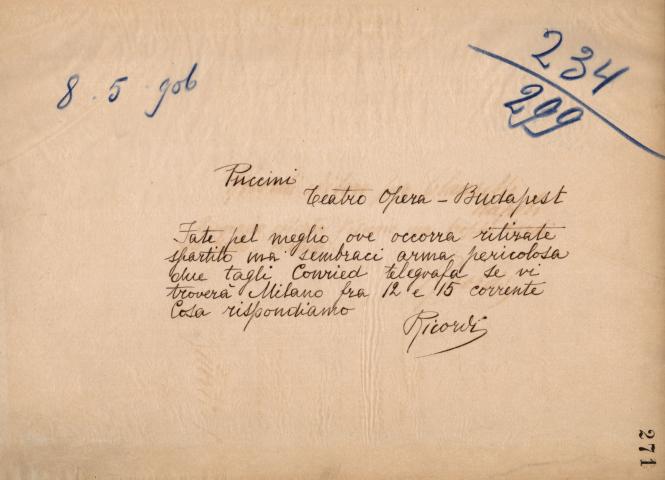 8 . 5 . 906
234
299
Puccini
Teatro Opera - Budapest
Fate pel meglio ove occorra ritirate
spartito ma sembraci arma pericolosa
due tagli Conried telegrafa se vi
troverà Milano fra 12 e 15 corrente
Cosa rispondiamo
Ricordi
271